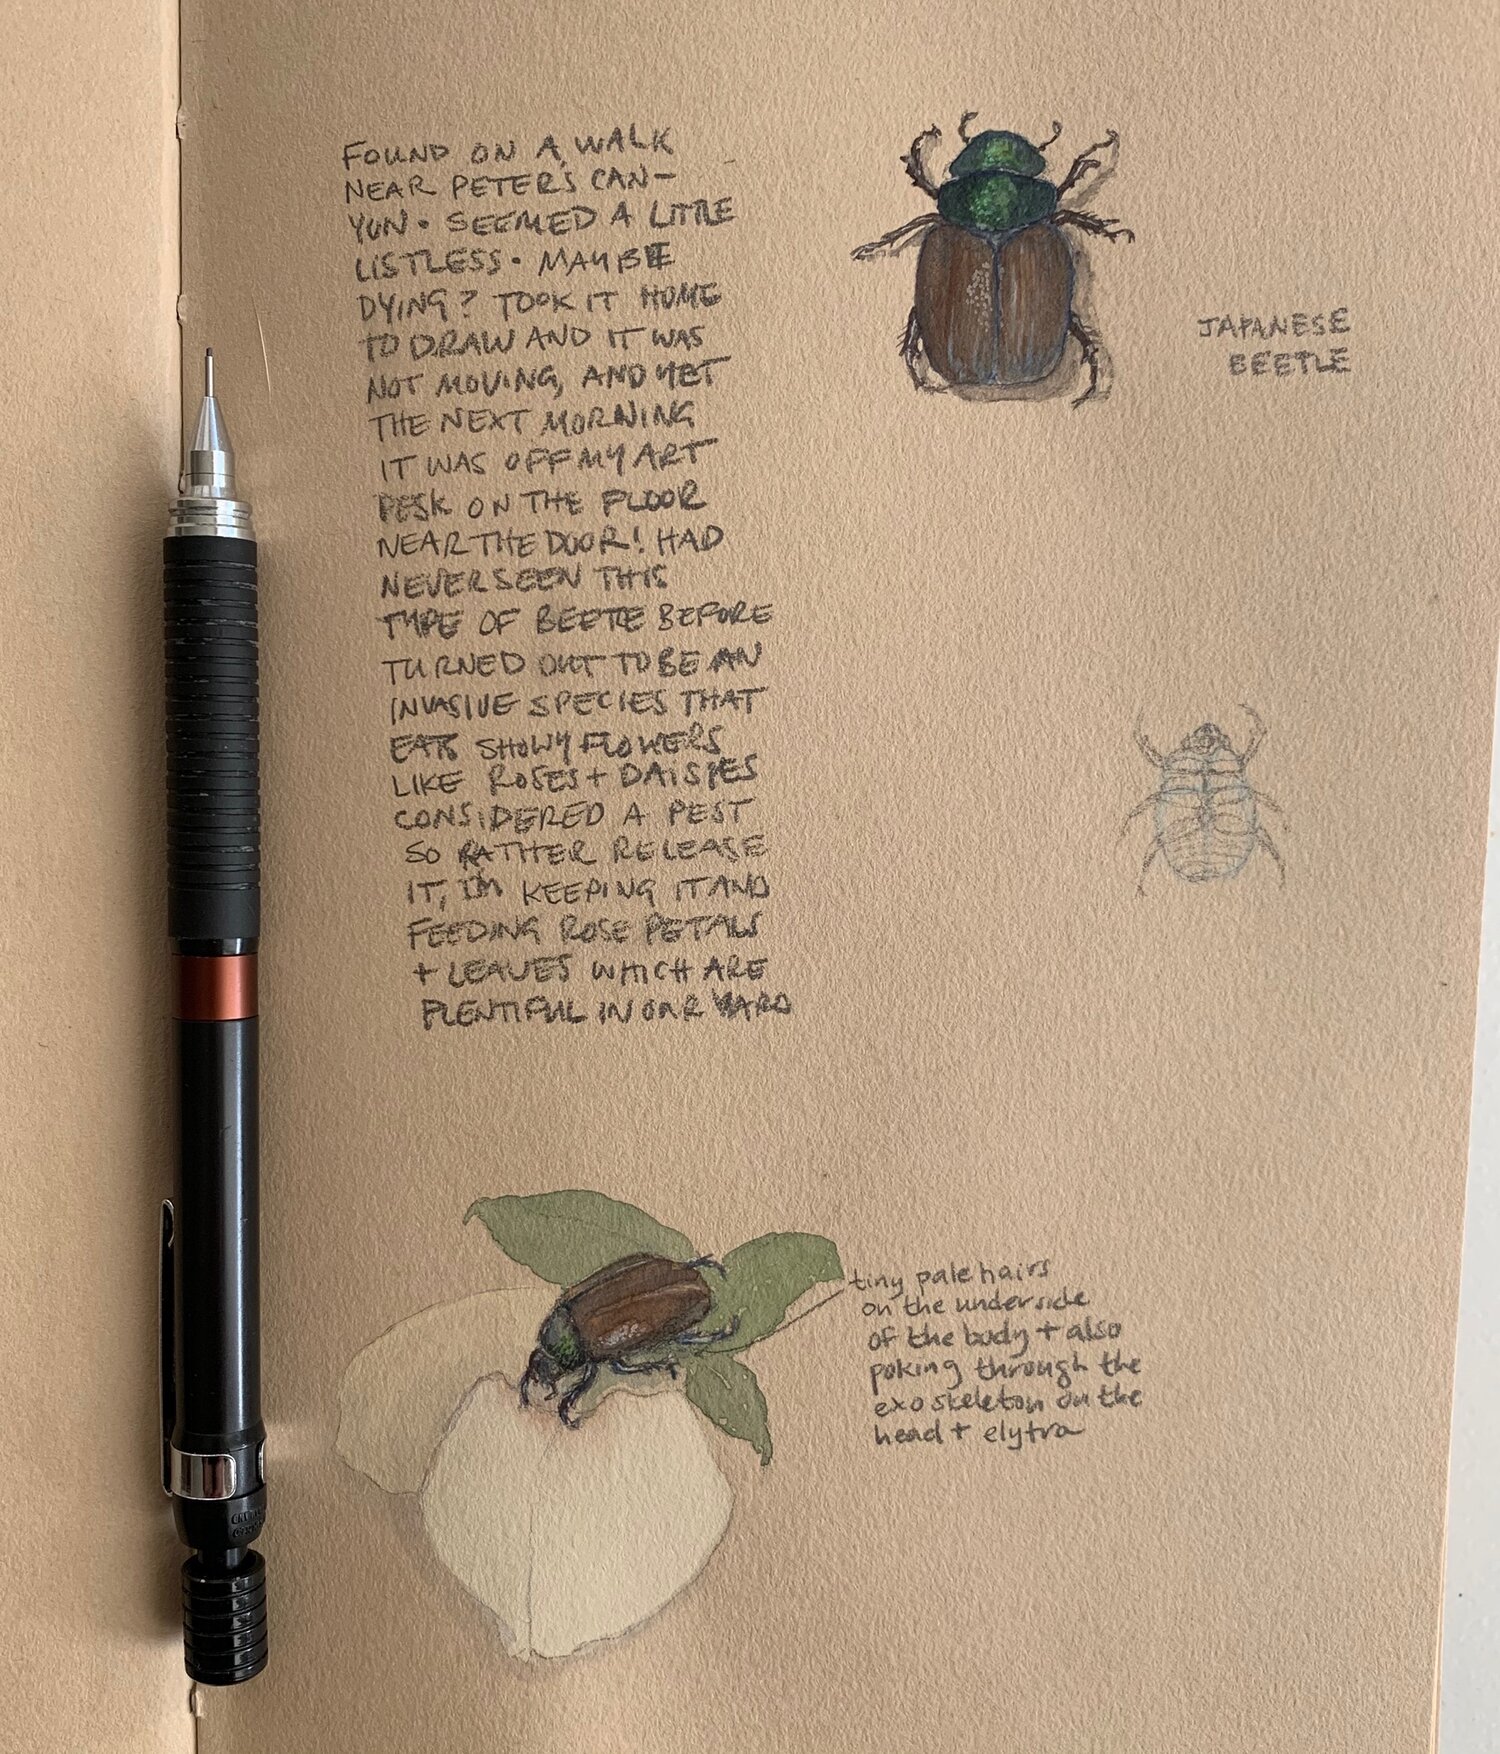 FOUND ON A WALK
NEAR PETERS CAN-
YON. SEEMED A LITTLE
LISTLESS. MAYBE
DYING? TOOK IT HOME
TO DRAW AND IT WAS
NOT MOVING, AND YET
THE NEXT MORNING
IT WAS OFF MY ART
DESK ON THE FLOOR
NEAR THE DOOR! HAD
NEVER SEEN THIS
TYPE OF BEETLE BEFORE
TURNED OUT TO BE AN
INVASIVE SPECIES THAT
EATS SHOWY FLOWERS
LIKE ROSES + DAISIES
CONSIDERED A PEST
SO RATHER RELEASE
IT, I'M KEEPING IT AND
FEEDING ROSE PETALS
+ LEAVES WHICH ARE
PLENTIFUL IN OUR YARD
JAPANESE
BEETLE
tiny pale hairs
on the underside
of the body + also
poking through the
exoskeleton on the
head + elytra